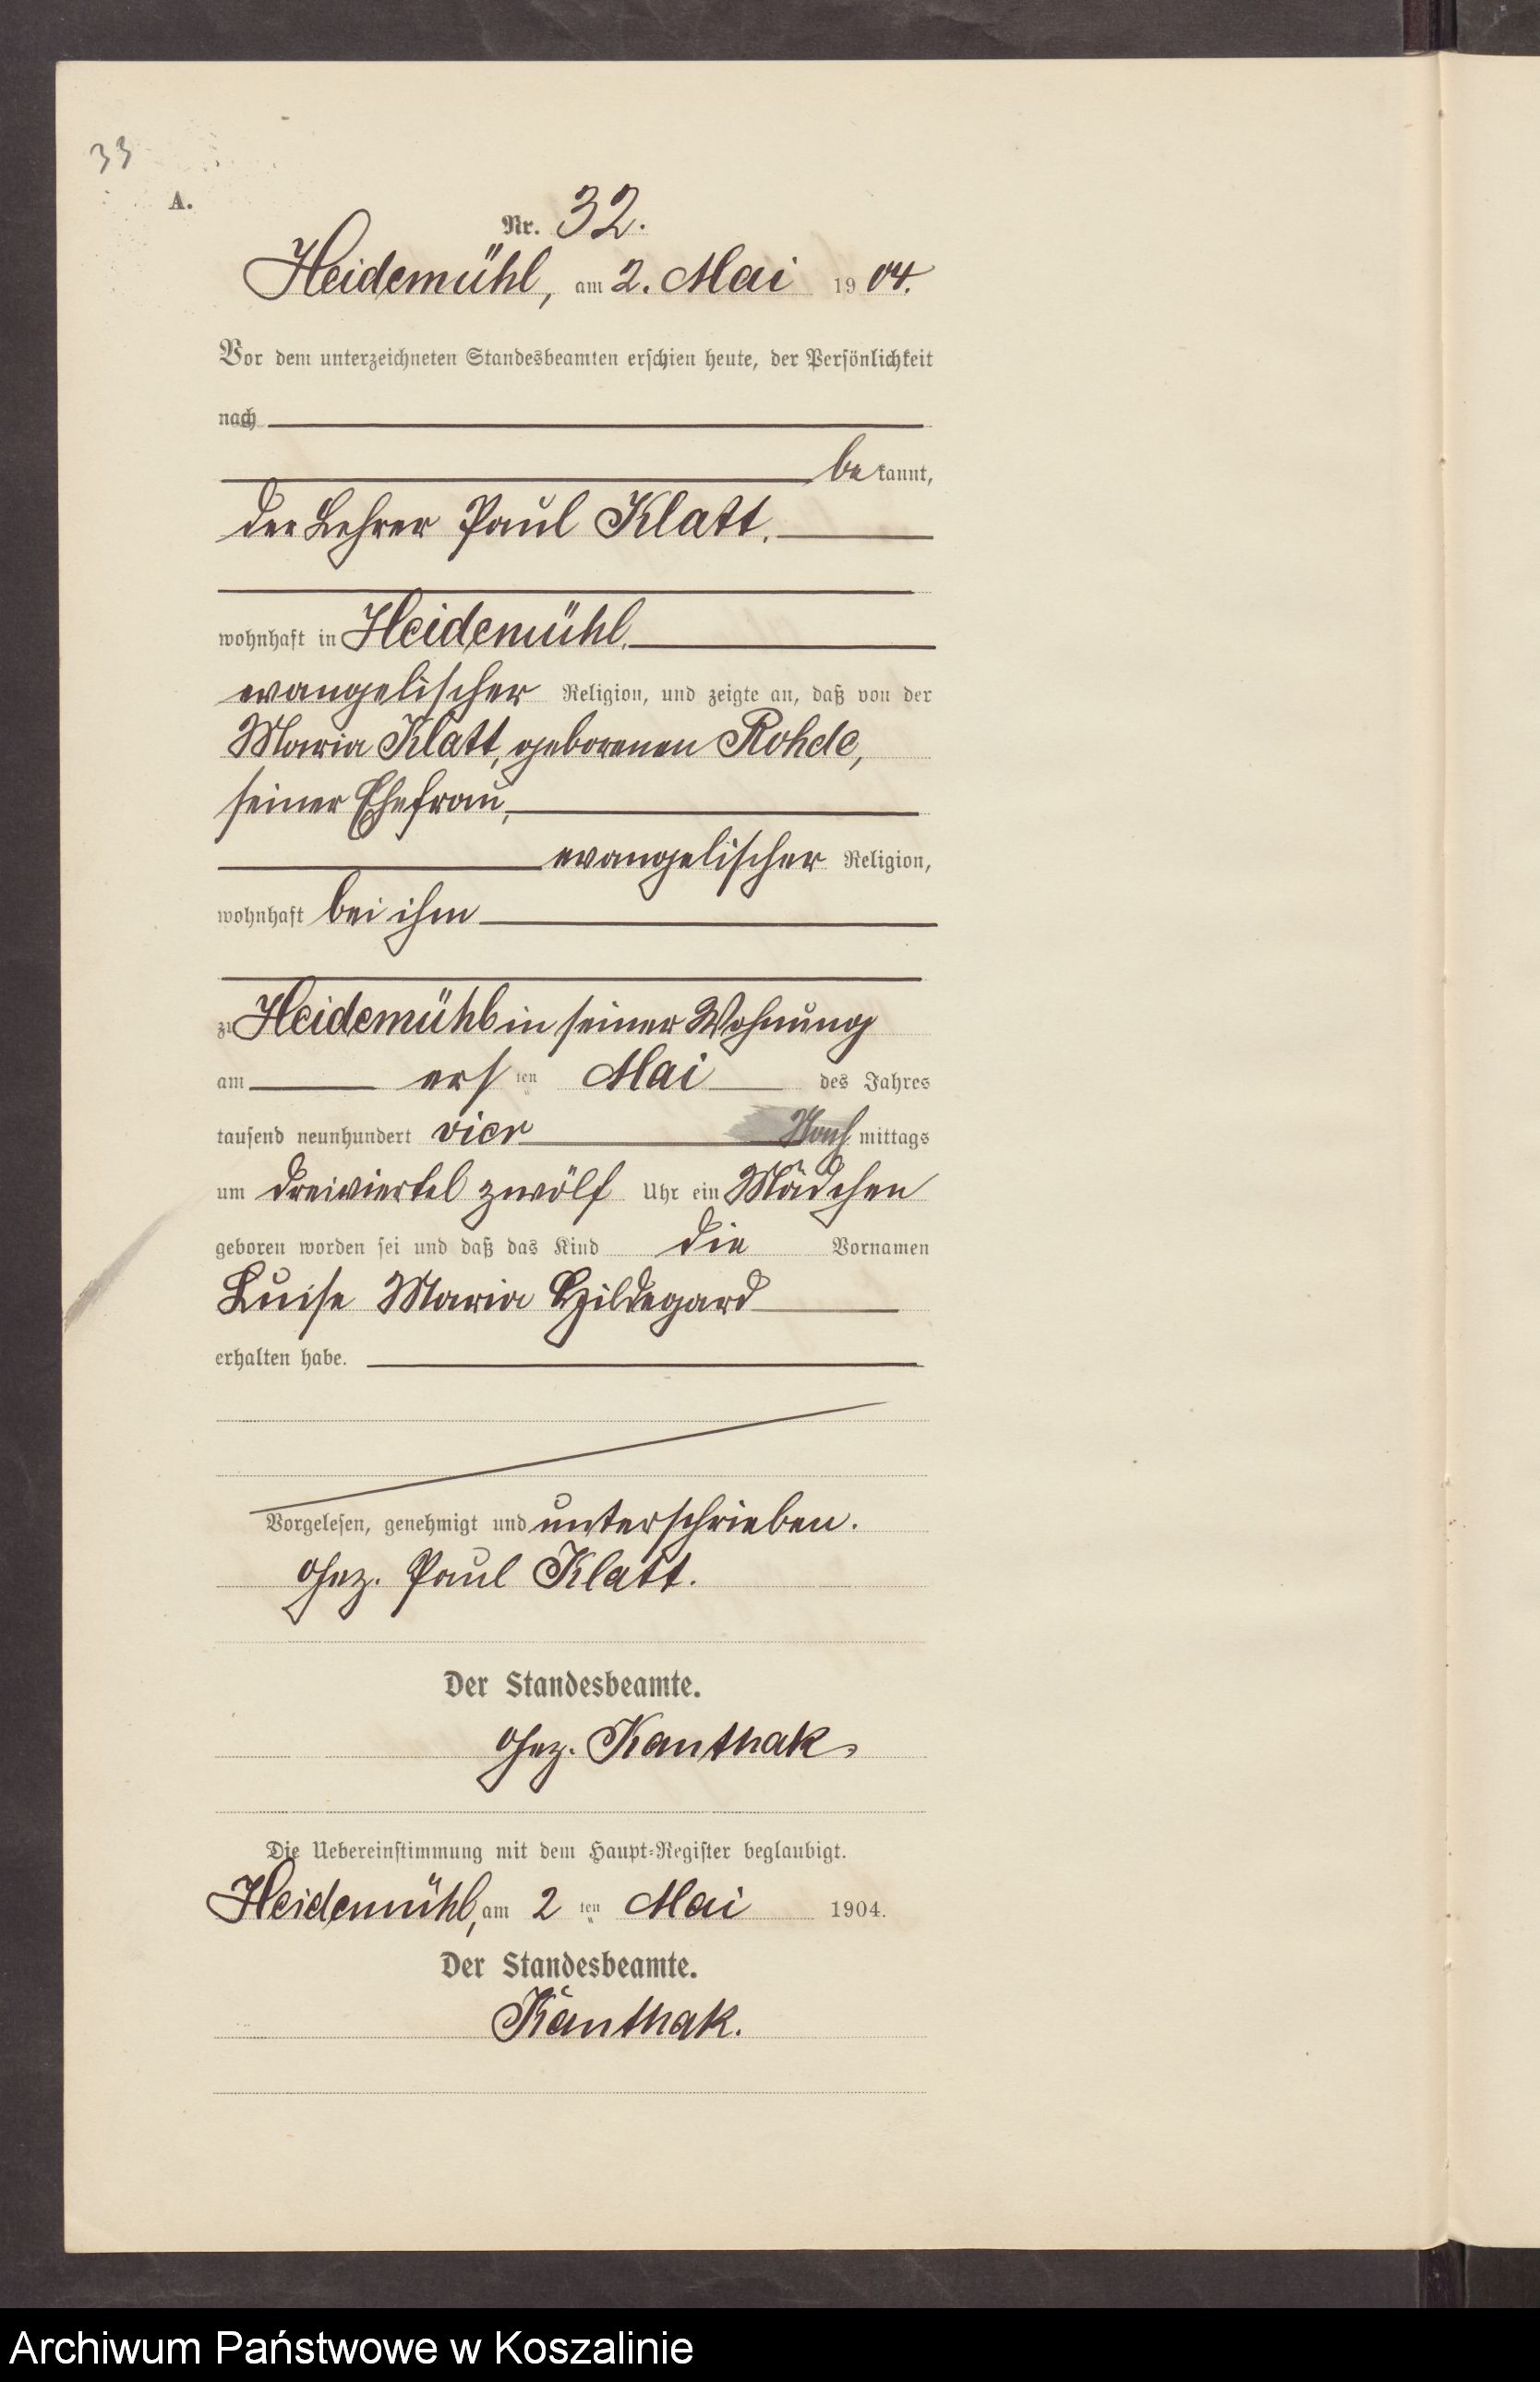 33
A.
Nr. 32.
Heidemühl, am 2. Mai 1904.
Vor dem unterzeichneten Standesbeamten erschien heute, der Persönlichkeit
nach
bekannt,
der Lehrer Paul Klatt,
wohnhaft in Heidemühl,
evangelischer Religion, und zeigte an, daß von der
Maria Klatt, geborenen Rohde,
seiner Ehefrau,
evangelischer Religion,
wohnhaft bei ihm
zu Heidemühl in seiner Wohnung
am ersten Mai des Jahres
tausend neunhundert vier Nachmittags
um dreiviertel zwölf Uhr ein Mädchen
geboren worden sei und daß das Kind die Vornamen
Luise Maria Hildegard
erhalten habe.
Vorgelesen, genehmigt und unterschrieben.
Gez. Paul Klatt.
Der Standesbeamte.
Gez. Kanthak.
Die Uebereinstimmung mit dem Haupt-Register beglaubigt.
Heidemühl, am 2ten Mai 1904.
Der Standesbeamte.
Kanthak.
Archiwum Państwowe w Koszalinie